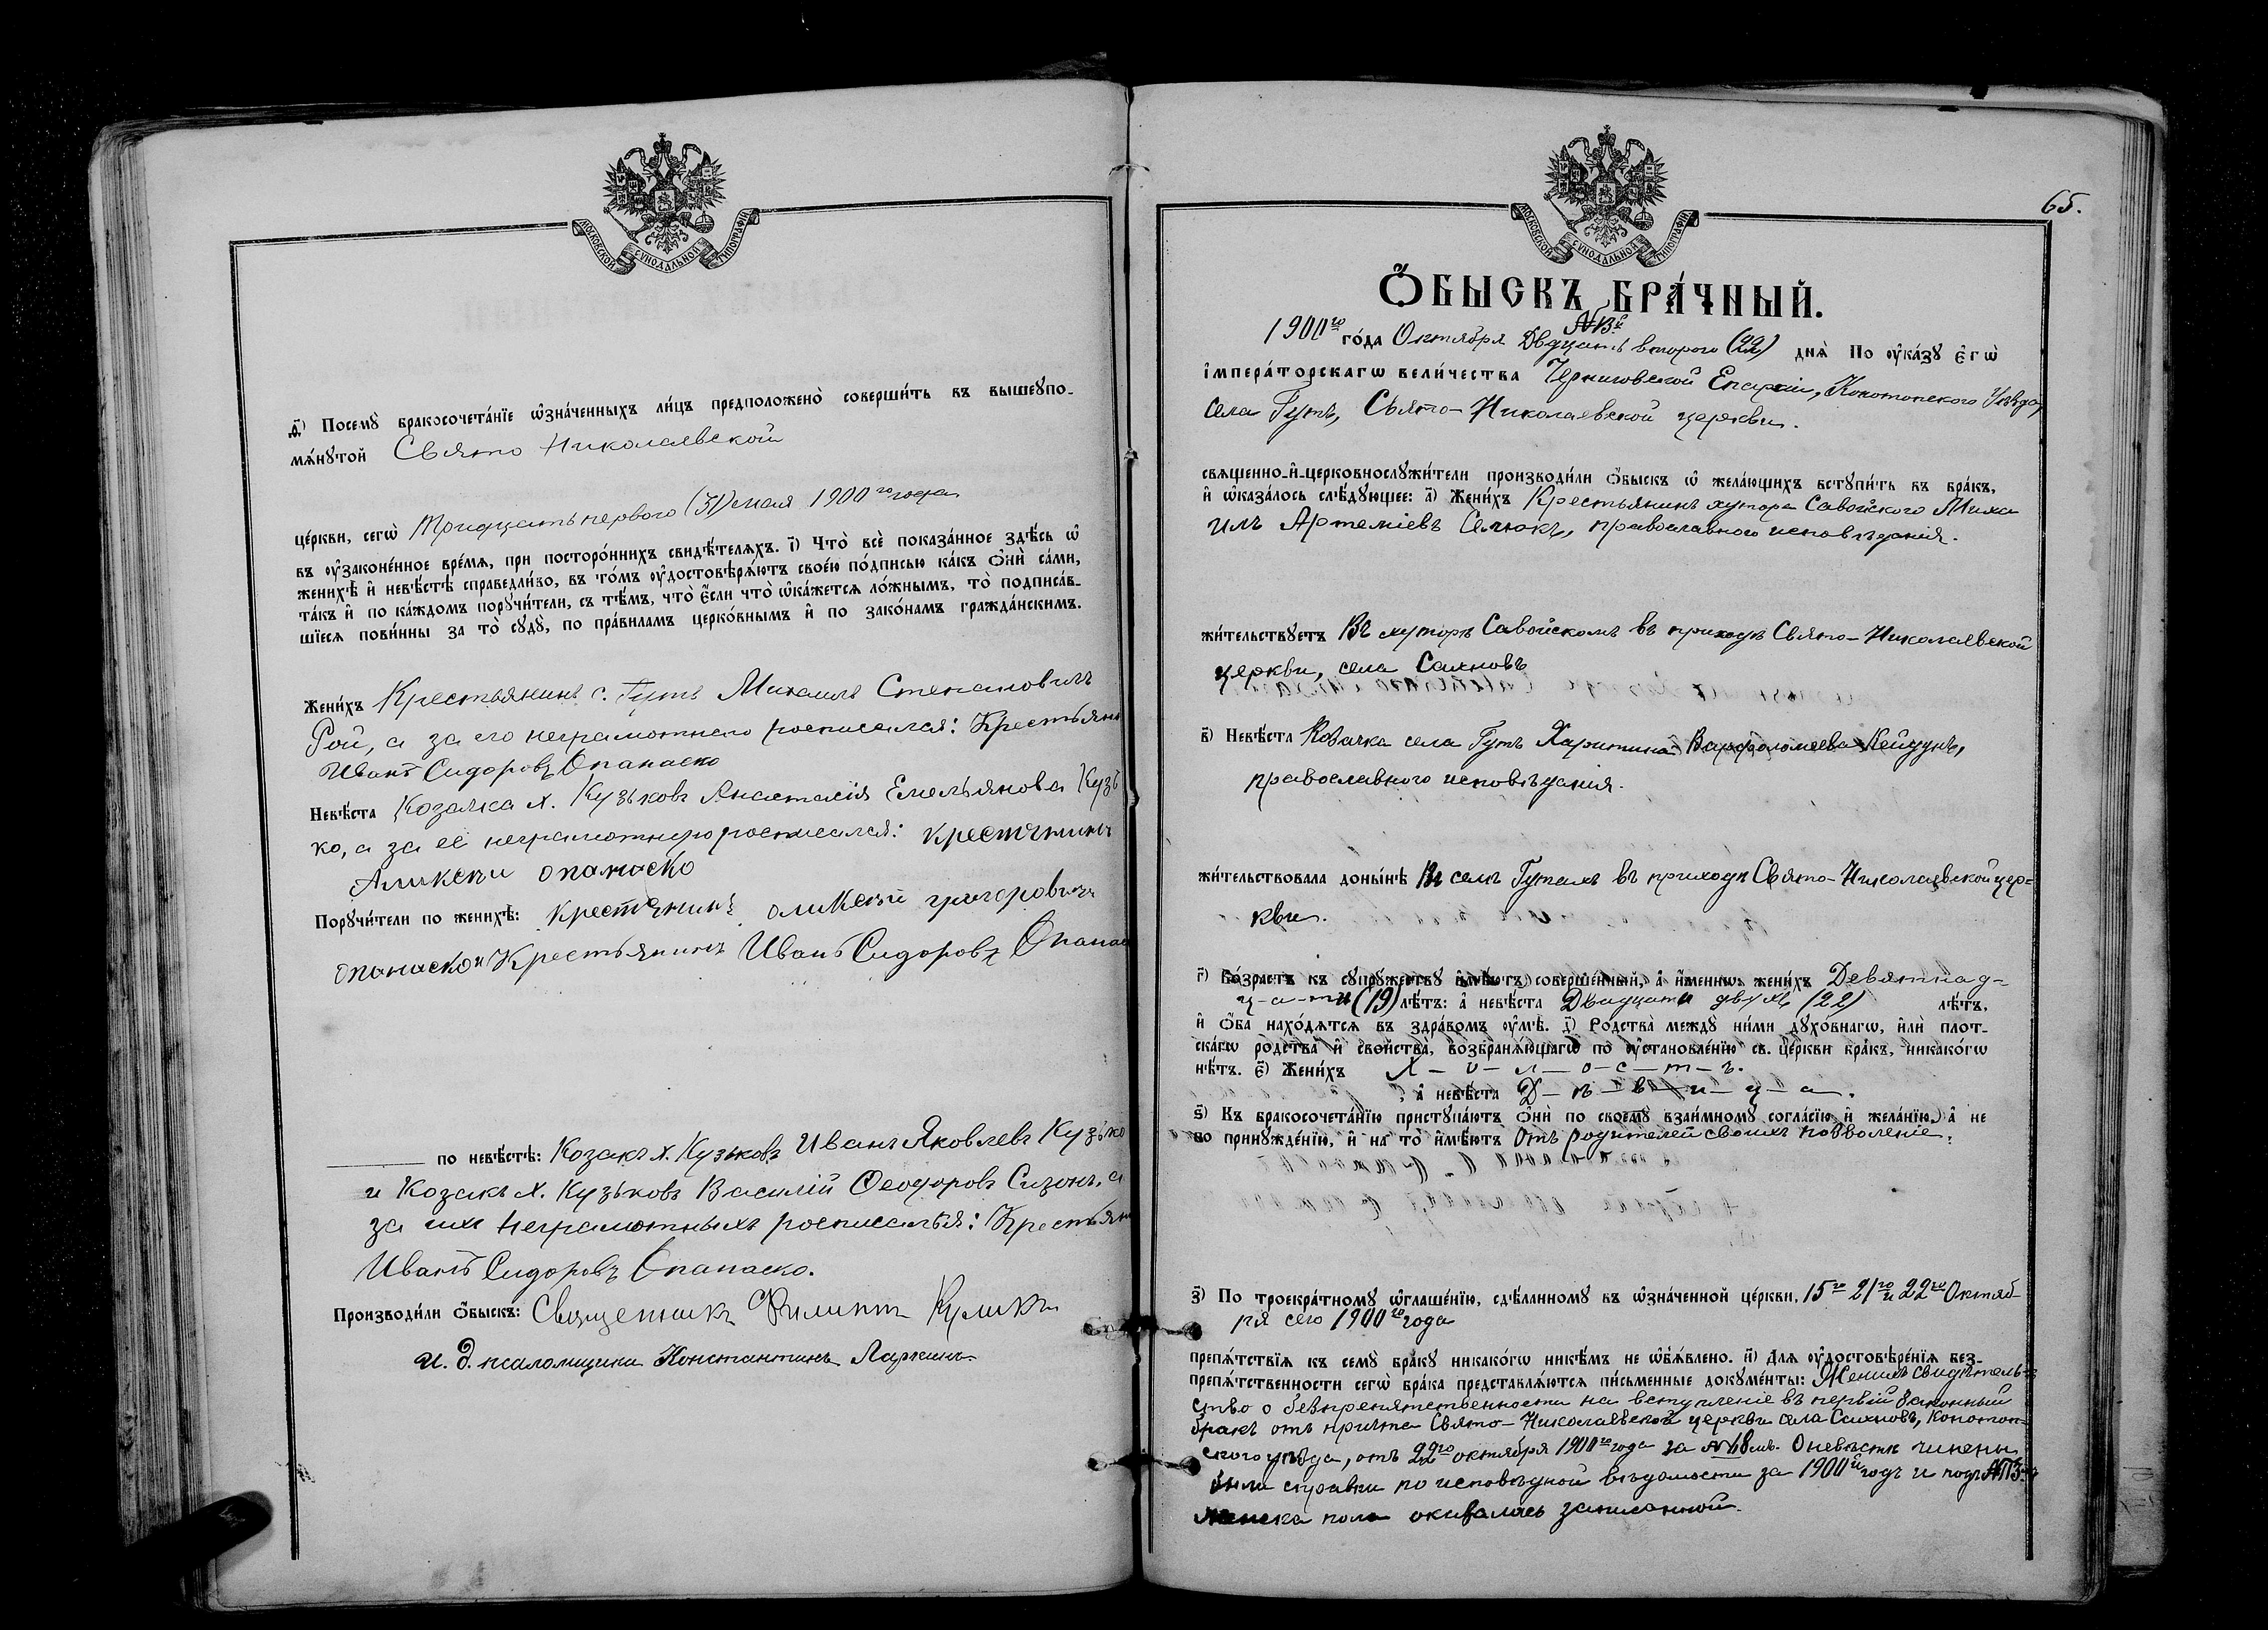 МОСКОВСКОЙ СѴНОДАЛЬНОЙ ТИПОГРАФІИ
Посемꙋ̀ бракосочета́нїе ѡ҆зна́ченныхъ ли́цъ предположено̀ соверши́ть въ вышеꙋпо-
мѧ́нꙋтой Свято Николаевской
це́ркви, сегѡ̀ Тридцать перваго (31) мая 1900 го года
въ ᲂу҆зако́ненное вре́мѧ, при посторо́ннихъ свидѣ́телѧхъ. і҃) Что̀ всѐ показа́нное здѣ́сь ѡ҆
женихѣ̀ и҆ невѣ́стѣ справедли́во, въ то́мъ ᲂу҆достовѣрѧ́ютъ свое́ю по́дписью ка́къ ѻ҆нѝ са́ми,
та́къ и҆ по ка́ждомъ порꙋчи́тели, съ тѣ́мъ, что̀ є҆́сли что̀ ѡ҆ка́жетсѧ ло́жнымъ, то̀ подписа́в-
шїесѧ пови́нны за то̀ сꙋдꙋ̀, по пра́виламъ церко́внымъ и҆ по зако́намъ гражда́нскимъ.
Жени́хъ Крестьянинъ с. Гутъ Михаилъ Степановичъ
Рой, а за его неграмотнаго росписался: Крестьян
Иванъ Сидоровъ Опанаско
Невѣ́ста Козачка х. Кузьковъ Анастасія Емельянова Кузь
ко, а за её неграмотную росписался: крестянинъ
Аликсѣи опанаско
Порꙋчи́тели по женихѣ̀: крестянинъ аликсѣй григоровичъ
опанаско и Крестьянинъ Иванъ Сидоровъ Опанас
по невѣ́стѣ: Козакъ х. Кузьковъ Иванъ Яковлевъ Кузько
и Козакъ х. Кузьковъ Василій Ѳеодоровъ Сизонъ, а
за их неграмотныхъ росписался: Крестьян
Иванъ Сидоровъ Опанаско.
Производи́ли ѻ҆́быскъ: Священникъ Филиппъ Куликъ
и. д. псаломщика Константинъ
65.
МОСКОВСКОЙ СѴНОДАЛЬНОЙ ТИПОГРАФІИ
Ѻ҆́БЫСКЪ БРА́ЧНЫЙ.
№ 13 й
1900 го го́да Октября Двадцать второго (22) днѧ̀ По ᲂу҆ка́зꙋ є҆гѡ̀
і҆мпера́торскагѡ вели́чества Черниговской Епархіи, Конотопского Уѣзда,
села Гутъ, Свято-Николаевской церкви.
свѧщенно-и҆-церковнослꙋжи́тели производи́ли ѻ҆́быскъ ѡ҆ жела́ющихъ встꙋпи́ть въ бра́къ,
и҆ ѡ҆каза́лось слѣ́дꙋющее: а҃) Жени́хъ Крестьянинъ хутора Савойского Миха
илъ Артеміевъ Селюкъ, православного исповѣданія.
жи́тельствꙋетъ Въ хуторѣ Савойскомъ въ приходѣ Свято-Николаевской
церкви, села Сахновъ
в҃) Невѣ́ста Козачка села Гутъ Харитина Варфоломеева
православного исповѣданія.
жи́тельствовала доны́нѣ Въ селѣ Гутахъ въ приходѣ Свято-Николаевской цер=
кви.
г҃) Во́зрастъ къ сꙋпрꙋ́жествꙋ и҆мѣ́ютъ соверше́нный, а҆ и҆́менно: жени́хъ Девятнад-
ц-а-ти (19) лѣ́тъ: а҆ невѣ́ста Двадцати двухъ (22) лѣ́тъ,
и҆ ѻ҆́ба нахо́дѧтсѧ въ здра́вомъ ᲂу҆мѣ̀. д҃) Родства̀ междꙋ̀ ни́ми дꙋхо́внагѡ, и҆лѝ плот-
ска́гѡ родства̀ и҆ сво́йства, возбранѧ́ющагѡ по ᲂу҆становле́нїю св. це́ркви бра́къ, никако́гѡ
нѣ́тъ. є҃) Жени́хъ Х-о-л-о-с-т-ъ.
а҆ невѣ́ста Д-ѣ-в-и-ц-а.
ѕ҃) Къ бракосочета́нїю пристꙋпа́ютъ ѻ҆нѝ по своемꙋ̀ взаи́мномꙋ согла́сїю и҆ жела́нїю, а҆ не
по принꙋжде́нїю, и҆ на то̀ и҆мѣ́ютъ отъ родителей своихъ позволеніе.
з҃) По троекра́тномꙋ ѡ҆глаше́нїю, сдѣ́ланномꙋ въ ѡ҆зна́ченной це́ркви, 15 го 21 го и 22 го Октяб-
ря сего 1900 го года
препѧ́тствїѧ къ семꙋ̀ бра́кꙋ никако́гѡ никѣ́мъ не ѡ҆б̾ѧ́влено. и҃) Для ᲂу҆достовѣре́нїѧ без-
препѧ́тственности сегѡ̀ бра́ка представлѧ́ютсѧ пи́сьменные докꙋме́нты: Жениха свидѣтель-
ство о безпрепятственности на вступленіе въ первій законный
бракъ отъ причта Свято-Николаевской церкви села Сахновъ, Конотоп-
ского уѣзда, отъ 22 го октября 1900 го года за № 48 мъ. О невѣстѣ чинены
были справки по исповѣдной вѣдомости за 1900 й годъ и подъ
женска пола оказалась записанной.